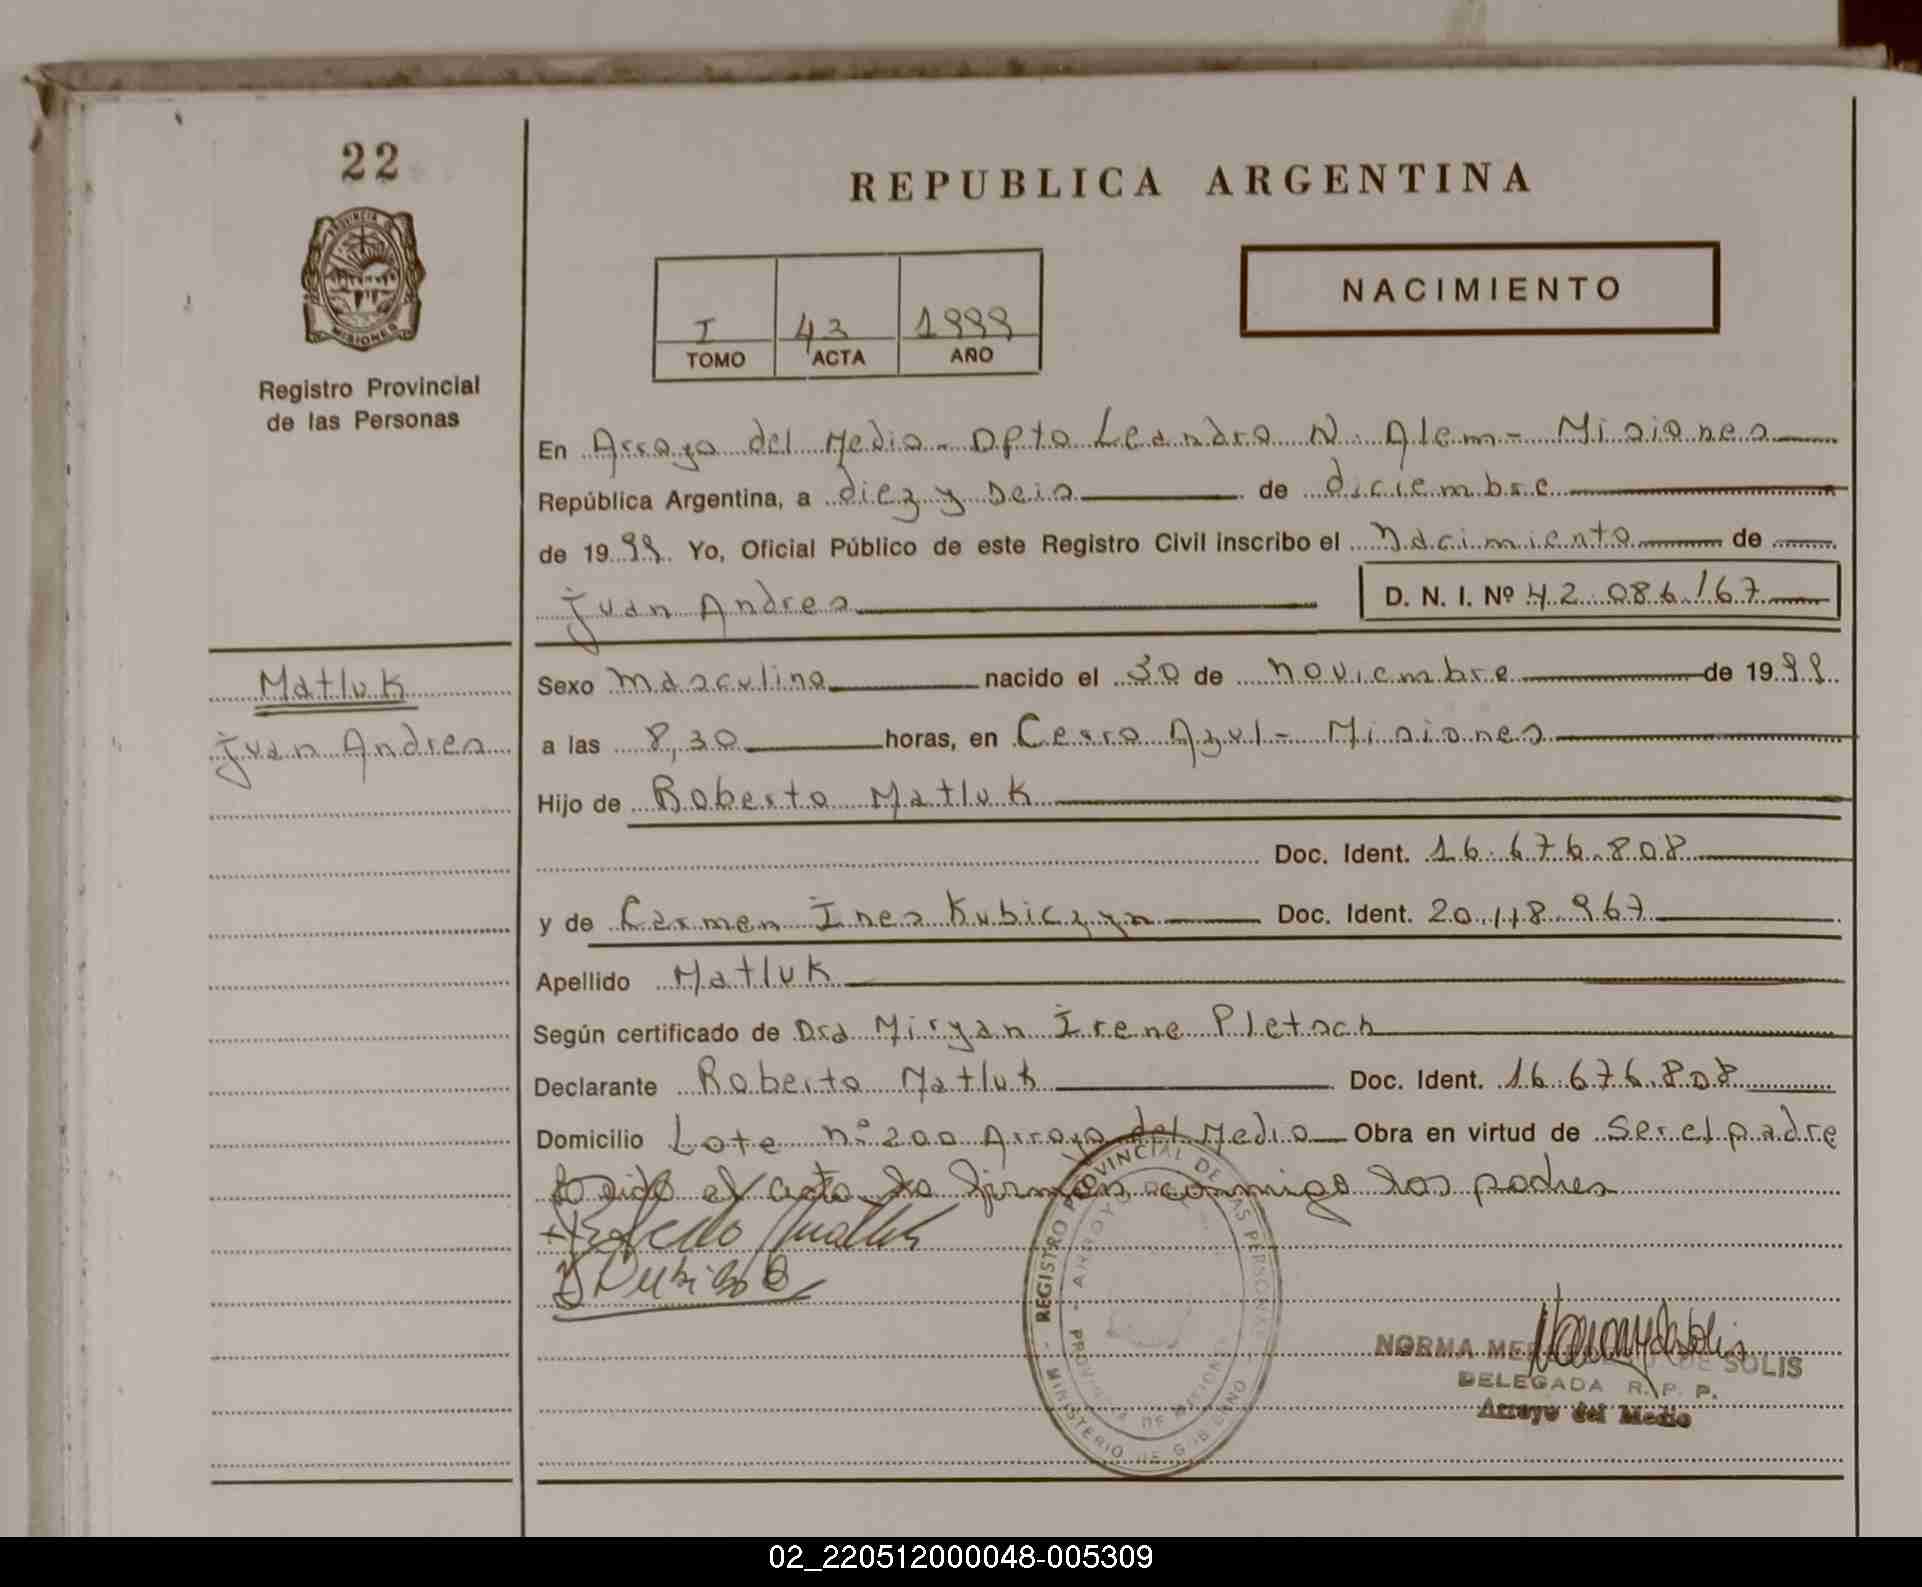 22
PROVINCIA DE
MISIONES
Registro Provincial
de las Personas
REPUBLICA ARGENTINA
I 43 1999
TOMO ACTA AÑO
NACIMIENTO
En Arroyo del Medio - Dpto Leandro N. Alem - Misiones
República Argentina, a diez y seis de diciembre
de 1999 Yo, Oficial Público de este Registro Civil inscribo el Nacimiento de
Juan Andres D. N. I. Nº 42.086.167
Matluk
Juan Andres
Sexo Masculino nacido el 30 de noviembre de 1999
a las 8,30 horas, en Cerro Azul - Misiones
Hijo de Roberto Matluk
Doc. Ident. 16.676.808
y de Carmen Ines Kubiczyn Doc. Ident. 20.118.967
Apellido Matluk
Según certificado de Dra Miryan Irene Pletsch
Declarante Roberto Matluk Doc. Ident. 16.676.808
Domicilio Lote nº 200 Arroyo del Medio Obra en virtud de Ser el padre
Leido el acta la firman conmigo los padres
REGISTRO PROVINCIAL DE LAS PERSONAS
MINISTERIO DE GOBIERNO
ARROYO DEL
PROVINCIA DE MISIONES
NORMA DE SOLIS
DELEGADA R. P. P.
Arroyo del Medio
02_220512000048-005309